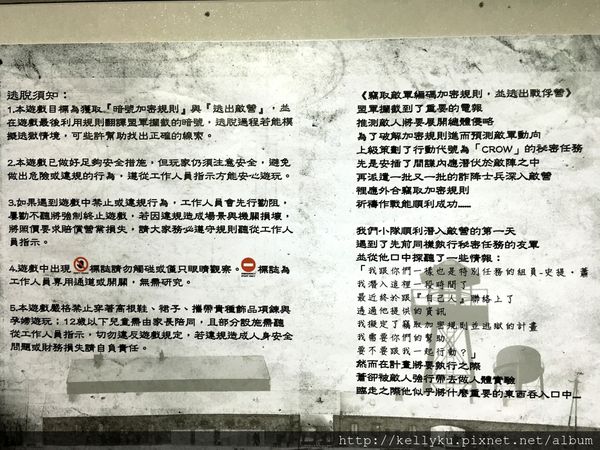 逃脫須知：
1.本遊戲目標為獲取『暗號加密規則』與『逃出敵營』，並
在遊戲最後利用規則翻譯盟軍攔截的暗號，逃脫過程若能模
擬逃獄情境，可些許幫助找出正確的線索。
2.本遊戲已做好足夠安全措施，但玩家仍須注意安全，避免
做出危險或違規的行為，遵從工作人員指示方能安心遊玩。
3.如果遇到遊戲中禁止或違規行為，工作人員會先行勸阻，
屢勸不聽將強制終止遊戲，若因違規造成場景與機關損壞，
將照價要求賠償營業損失，請大家務必遵守規則聽從工作人
員指示。
4.遊戲中出現 標誌請勿觸碰或僅只眼睛觀察。 標誌為
工作人員專用通道或開關，無需研究。
5.本遊戲嚴格禁止穿著高根鞋、裙子、攜帶貴種飾品項鍊與
孕婦遊玩；12歲以下兒童需由家長陪同，且部分設施需聽
從工作人員指示，切勿違反遊戲規定，若違規造成人身安全
問題或財務損失請自負責任。
《竊取敵軍編碼加密規則，並逃出戰俘營》
盟軍攔截到了重要的電報
推測敵人將要展開總體侵略
為了破解加密規則進而預測敵軍動向
上級策劃了行動代號為「CROW」的秘密任務
先是安插了間諜內應潛伏於敵陣之中
再派遣一批又一批的詐降士兵深入敵營
裡應外合竊取加密規則
祈禱作戰能順利成功......
我們小隊順利潛入敵營的第一天
遇到了先前同樣執行秘密任務的友軍
並從他口中探聽了一些情報：
「我跟你們一樣也是特別任務的組員-史提‧蕭
我潛入這裡一段時間了
最近終於跟『自己人』聯絡上了
透過他提供的資訊
我擬定了竊取加密規則並逃獄的計畫
我需要你們的幫助
要不要跟我一起行動？」
然而在計畫將要執行之際
蕭卻被敵人強行帶去做人體實驗
臨走之際他似乎將什麼重要的東西吞入口中...
http://kellyku.pixnet.net/album